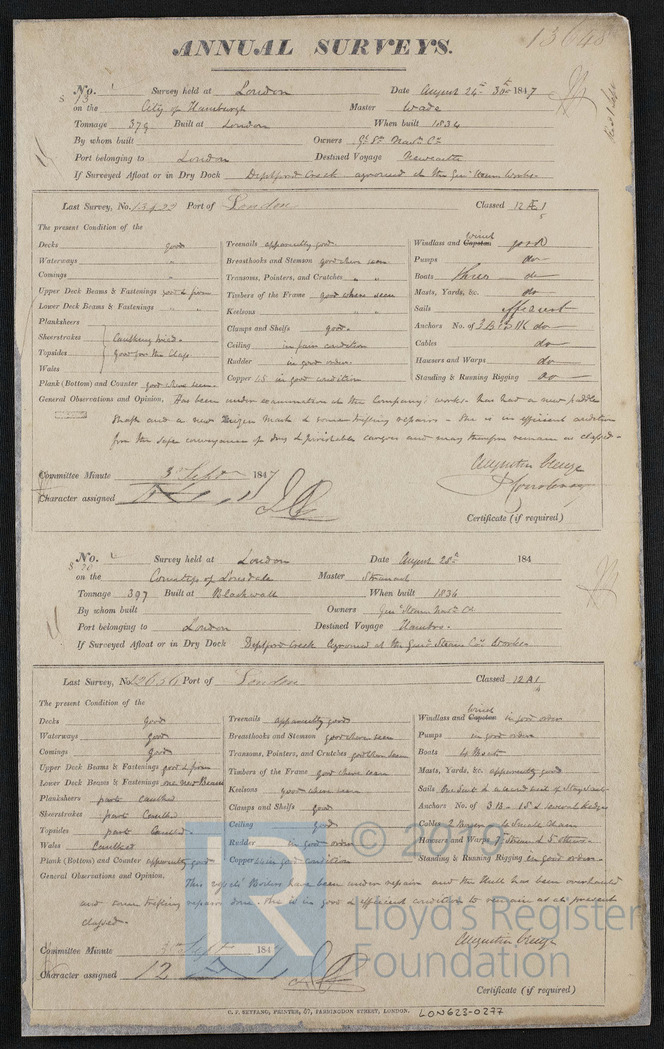 13648
ANNUAL SURVEYS.
No. Survey held at London Date August 24th 30th 1847
on the City of Hamburgh Master Wade
Tonnage 379 Built at London When built 1834
By whom built Owners Gl. St. Navn. Co.
Port belonging to London Destined Voyage Newcastle
If Surveyed Afloat or in Dry Dock Deptford Creek aground at the Genl. Steam Works
Last Survey, No. Port of London Classed 12 Æ 1
The present Condition of the
Decks good Treenails apparently good Windlass and Capstan Winch good
Waterways " Breasthooks and Stemson good where seen Pumps do
Comings " Transoms, Pointers, and Crutches " " Boats three do
Upper Deck Beams & Fastenings good & firm Timbers of the Frame good where seen Masts, Yards, &c. do
Lower Deck Beams & Fastenings " " Keelsons " Sails efficient
Plansheers Clamps and Shelfs good Anchors No. of 3 B do
Sheerstrakes Caulking Ceiling in fair condition Cables do
Topsides good for the Class. Rudder in good order Hawsers and Warps do
Wales Copper in good condition Standing & Running Rigging do
Plank (Bottom) and Counter good where seen
General Observations and Opinion, Has been under examination at the Company's works. Has had a new paddle
Shaft and a new Mizen Mast & some trifling repairs. She is in efficient condition
for the safe conveyance of dry & perishable cargoes and may therefore remain as classed.
Augustin Creuze
J Courtenay
Committee Minute 3rd Septr 1847
Character assigned
Certificate (if required)
No. Survey held at London Date August 28th 184
on the Countess of Lonsdale Master
Tonnage 397 Built at Blackwall When built 1836
By whom built Owners Genl. Steam Navn. Co.
Port belonging to London Destined Voyage Hambro.
If Surveyed Afloat or in Dry Dock Deptford Creek aground at the Genl. Steam Cos. Works
Last Survey, No. 13656 Port of London Classed 12 A 1
The present Condition of the
Decks Good Treenails apparently good Windlass and Capstan Winch in good order
Waterways Good Breasthooks and Stemson good where seen Pumps in good order
Comings Good Transoms, Pointers, and Crutches good where seen Boats
Upper Deck Beams & Fastenings good & firm Timbers of the Frame good where seen Masts, Yards, &c. apparently good
Lower Deck Beams & Fastenings one new Beam Keelsons good where seen Sails
Plansheers part caulked Clamps and Shelfs good Anchors No. of 3 B.
Sheerstrakes part Caulked Ceiling good Cables
Topsides part Caulked. Rudder in good order Hawsers and Warps
Wales Caulked Copper in good condition Standing & Running Rigging in good order
Plank (Bottom) and Counter apparently good
General Observations and Opinion, This vessels' Boilers have been under repair and the Hull has been overhauled
and some trifling repairs done. She is in good & efficient condition to remain as at present
classed.
Augustin Creuze
Committee Minute 3rd Septr 1847
Character assigned 12 A 1
Certificate (if required)
C. F. SEYFANG, PRINTER, 57, FARRINGDON STREET, LONDON. LON623-0277
LR © 2019
Lloyd's Register
Foundation